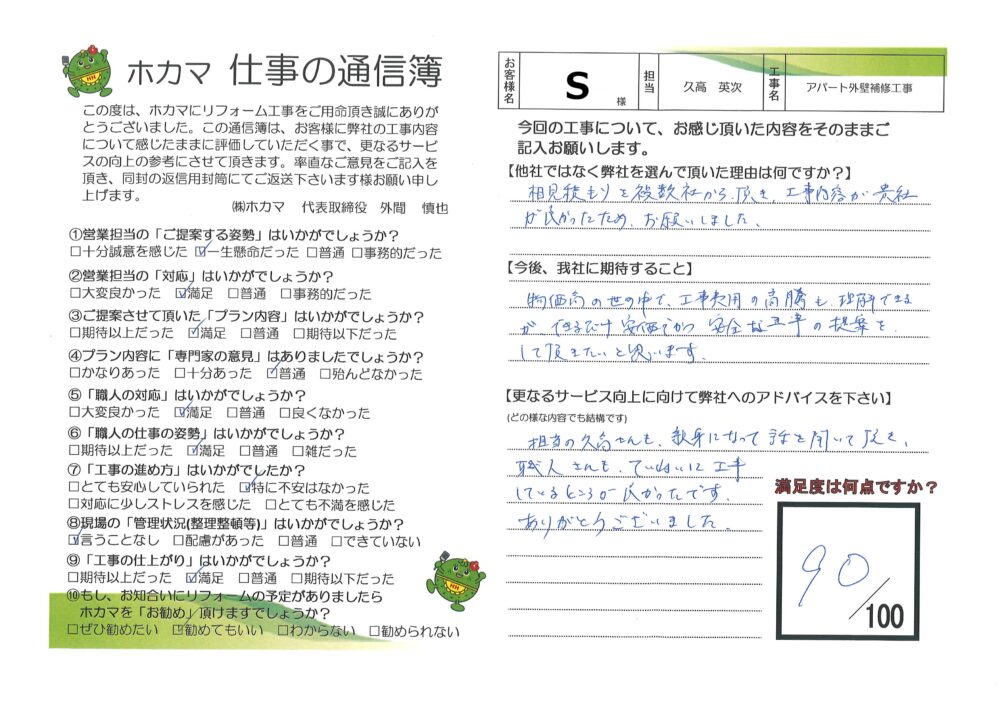 ホカマ 仕事の通信簿
この度は、ホカマにリフォーム工事をご用命頂き誠にありが
とうございました。この通信簿は、お客様に弊社の工事内容
について感じたままに評価していただく事で、更なるサービ
スの向上の参考にさせて頂きます。率直なご意見をご記入を
頂き、同封の返信用封筒にてご返送下さいます様お願い申し
上げます。
㈱ホカマ 代表取締役 外間 慎也
①営業担当の「ご提案する姿勢」はいかがでしょうか?
□十分誠意を感じた ☑一生懸命だった □普通 □事務的だった
②営業担当の「対応」はいかがでしょうか?
□大変良かった ☑満足 □普通 □事務的だった
③ご提案させて頂いた「プラン内容」はいかがでしょうか?
□期待以上だった ☑満足 □普通 □期待以下だった
④プラン内容に「専門家の意見」はありましたでしょうか?
□かなりあった □十分あった ☑普通 □殆んどなかった
⑤「職人の対応」はいかがでしょうか?
□大変良かった ☑満足 □普通 □良くなかった
⑥「職人の仕事の姿勢」はいかがでしょうか?
□期待以上だった ☑満足 □普通 □雑だった
⑦「工事の進め方」はいかがでしたか?
□とても安心していられた ☑特に不安はなかった
□対応に少しストレスを感じた □とても不満を感じた
⑧現場の「管理状況(整理整頓等)」はいかがでしょうか?
☑言うことなし □配慮があった □普通 □できていない
⑨「工事の仕上がり」はいかがでしょうか?
□期待以上だった ☑満足 □普通 □期待以下だった
⑩もし、お知合いにリフォームの予定がありましたら
ホカマを「お勧め」頂けますでしょうか?
□ぜひ勧めたい ☑勧めてもいい □わからない □勧められない
お客様名 S 様 担当 久高 英次 工事名 アパート外壁補修工事
今回の工事について、お感じ頂いた内容をそのままご
記入お願いします。
【他社ではなく弊社を選んで頂いた理由は何ですか?】
相見積もりを複数社から頂き、工事内容が貴社
が良かったため、お願いしました。
【今後、我社に期待すること】
物価高の世の中で、工事費用の高騰も理解できる
が、できるだけ安価でかつ安全な工事の提案を、
して頂きたいと思います。
【更なるサービス向上に向けて弊社へのアドバイスを下さい】
(どの様な内容でも結構です)
担当の久高さんも、親身になって話を聞いて頂き、
職人さんも、ていねいに工事
しているところが良かったです。
ありがとうございました。
満足度は何点ですか?
90/100